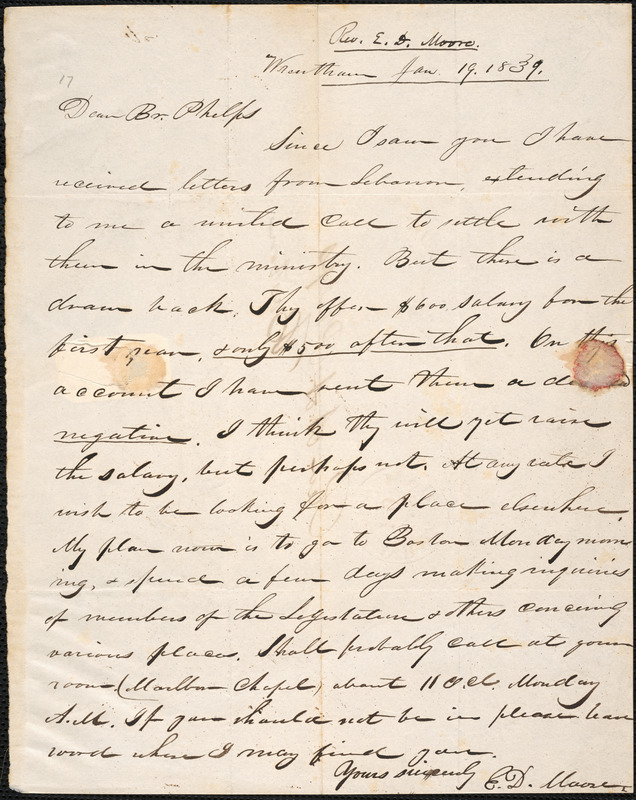 Rev. E. D. Moore.
Wrentham Jan. 19. 1839.
17
Dear Br. Phelps
Since I saw you I have
received letters from Lebanon, extending
to me a united call to settle with
them in the ministry. But there is a
draw back. Thy offer $600, salary for the
first year, & only $500, after that. On this
account I have sent them a
negative. I think thy will yet raise
the salary, but perhaps not. At any rate I
wish to be looking for a place elsewhere.
My plan now is to go to Boston Monday morn
ing, & spend a few days making inquiries
of members of the Legislature & others concering
various places. Shall probably call at your
room (Marlboro Chapel) about 11 O.Cl. Monday
A.M. If you should not be in please leave
word where I may find you.
Yours sincerely E. D. Moore.